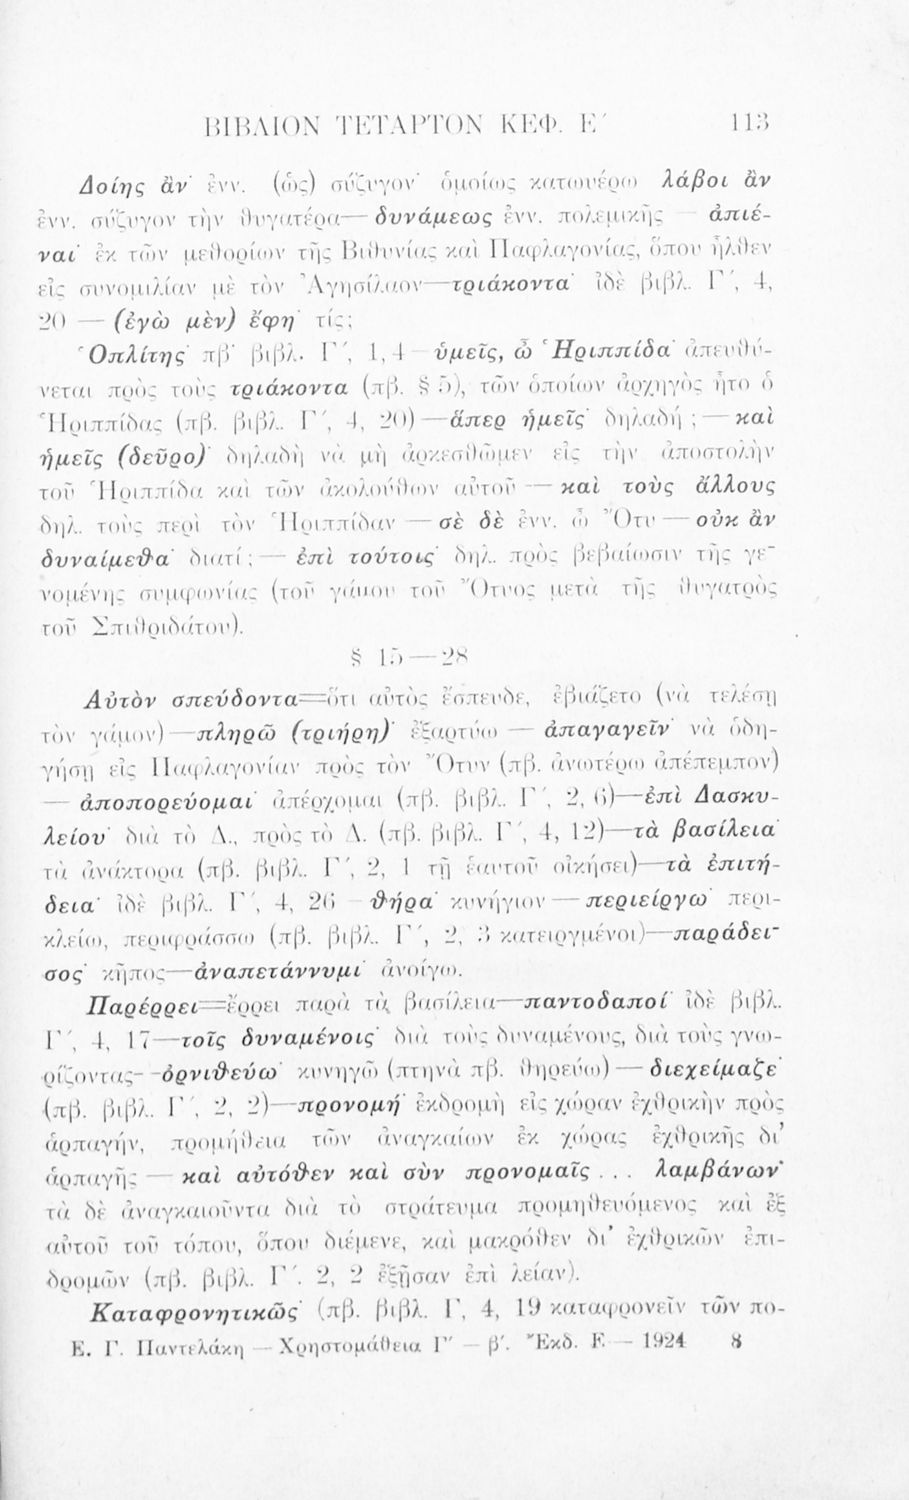 ΒΙΒΛΙΟΝ ΤΕΤΑΡΤΟΝ ΚΕΦ. Ε΄ 113
Δοίης ἂν· ἐνν. (ὡς) σύζυγον· ὁμοίως κατωτέρω λάβοι ἂν
ἐνν. σύζυγον τὴν θυγατέρα— δυνάμεως ἐνν. πολεμικῆς — ἀπιέ-
ναι· ἐκ τῶν μεθορίων τῆς Βιθυνίας καὶ Παφλαγονίας, ὅπου ἦλθεν
εἰς συνομιλίαν μὲ τὸν Ἀγησίλαον—τριάκοντα· ἰδὲ βιβλ. Γ΄, 4,
20 — (ἐγὼ μὲν) ἔφη· τίς;
Ὁπλίτης· πβ· βιβλ. Γ΄, 1,4 — ὑμεῖς, ὦ Ἡριππίδα· ἀπευθύ-
νεται πρὸς τοὺς τριάκοντα (πβ. § 5), τῶν ὁποίων ἀρχηγὸς ἦτο ὁ
Ἡριππίδας (πβ. βιβλ. Γ΄, 4, 20)—ἅπερ ἡμεῖς· δηλαδή ;— καὶ
ἡμεῖς (δεῦρο)· δηλαδὴ νὰ μὴ ἀρκεσθῶμεν εἰς τὴν ἀποστολὴν
τοῦ Ἡριππίδα καὶ τῶν ἀκολούθων αὐτοῦ — καὶ τοὺς ἄλλους
δηλ. τοὺς περὶ τὸν Ἡριππίδαν — σὲ δὲ ἐνν. ὦ Ὄτυ — οὐκ ἂν
δυναίμεθα· διατί; — ἐπὶ τούτοις· δηλ. πρὸς βεβαίωσιν τῆς γε-
νομένης συμφωνίας (τοῦ γάμου τοῦ Ὄτυος μετὰ τῆς θυγατρὸς
τοῦ Σπιθριδάτου).
§ 15 — 28
Αὐτὸν σπεύδοντα=ὅτι αὐτὸς ἔσπευδε, ἐβιάζετο (νὰ τελέσῃ
τὸν γάμον)—πληρῶ (τριήρη)· ἐξαρτύω — ἀπαγαγεῖν· νὰ ὁδη-
γήσῃ εἰς Παφλαγονίαν πρὸς τὸν Ὄτυν (πβ. ἀνωτέρω ἀπέπεμπον)
— ἀποπορεύομαι· ἀπέρχομαι (πβ. βιβλ. Γ΄, 2, 6)—ἐπὶ Δασκυ-
λείου· διὰ τὸ Δ., πρὸς τὸ Δ. (πβ. βιβλ. Γ΄, 4, 12)—τὰ βασίλεια·
τὰ ἀνάκτορα (πβ. βιβλ. Γ΄, 2, 1 τῇ ἑαυτοῦ οἰκήσει)—τὰ ἐπιτή-
δεια· ἰδὲ βιβλ. Γ΄, 4, 26 — θήρα· κυνήγιον — περιείργω· περι-
κλείω, περιφράσσω (πβ. βιβλ. Γ΄, 2, 3 κατειργμένοι)—παράδει-
σος· κῆπος—ἀναπετάννυμι· ἀνοίγω.
Παρέρρει=ἔρρει παρὰ τὰ βασίλεια—παντοδαποί· ἰδὲ βιβλ.
Γ΄, 4, 17—τοῖς δυναμένοις· διὰ τοὺς δυναμένους, διὰ τοὺς γνω-
ρίζοντας- -ὀρνιθεύω· κυνηγῶ (πτηνὰ πβ. θηρεύω) — διεχείμαζε·
(πβ. βιβλ. Γ΄, 2, 2)—προνομή· ἐκδρομὴ εἰς χώραν ἐχθρικὴν πρὸς
ἁρπαγήν, προμήθεια τῶν ἀναγκαίων ἐκ χώρας ἐχθρικῆς δι'
ἁρπαγῆς — καὶ αὐτόθεν καὶ σὺν προνομαῖς . . . λαμβάνων·
τὰ δὲ ἀναγκαιοῦντα διὰ τὸ στράτευμα προμηθευόμενος καὶ ἐξ
αὐτοῦ τοῦ τόπου, ὅπου διέμενε, καὶ μακρόθεν δι' ἐχθρικῶν ἐπι-
δρομῶν (πβ. βιβλ. Γ΄. 2, 2 ἐξῇσαν ἐπὶ λείαν).
Καταφρονητικῶς· (πβ. βιβλ. Γ, 4, 19 καταφρονεῖν τῶν πο-
Ε. Γ. Παντελάκη — Χρηστομάθεια Γ΄ — β΄. Ἔκδ. Ε. — 1924 8